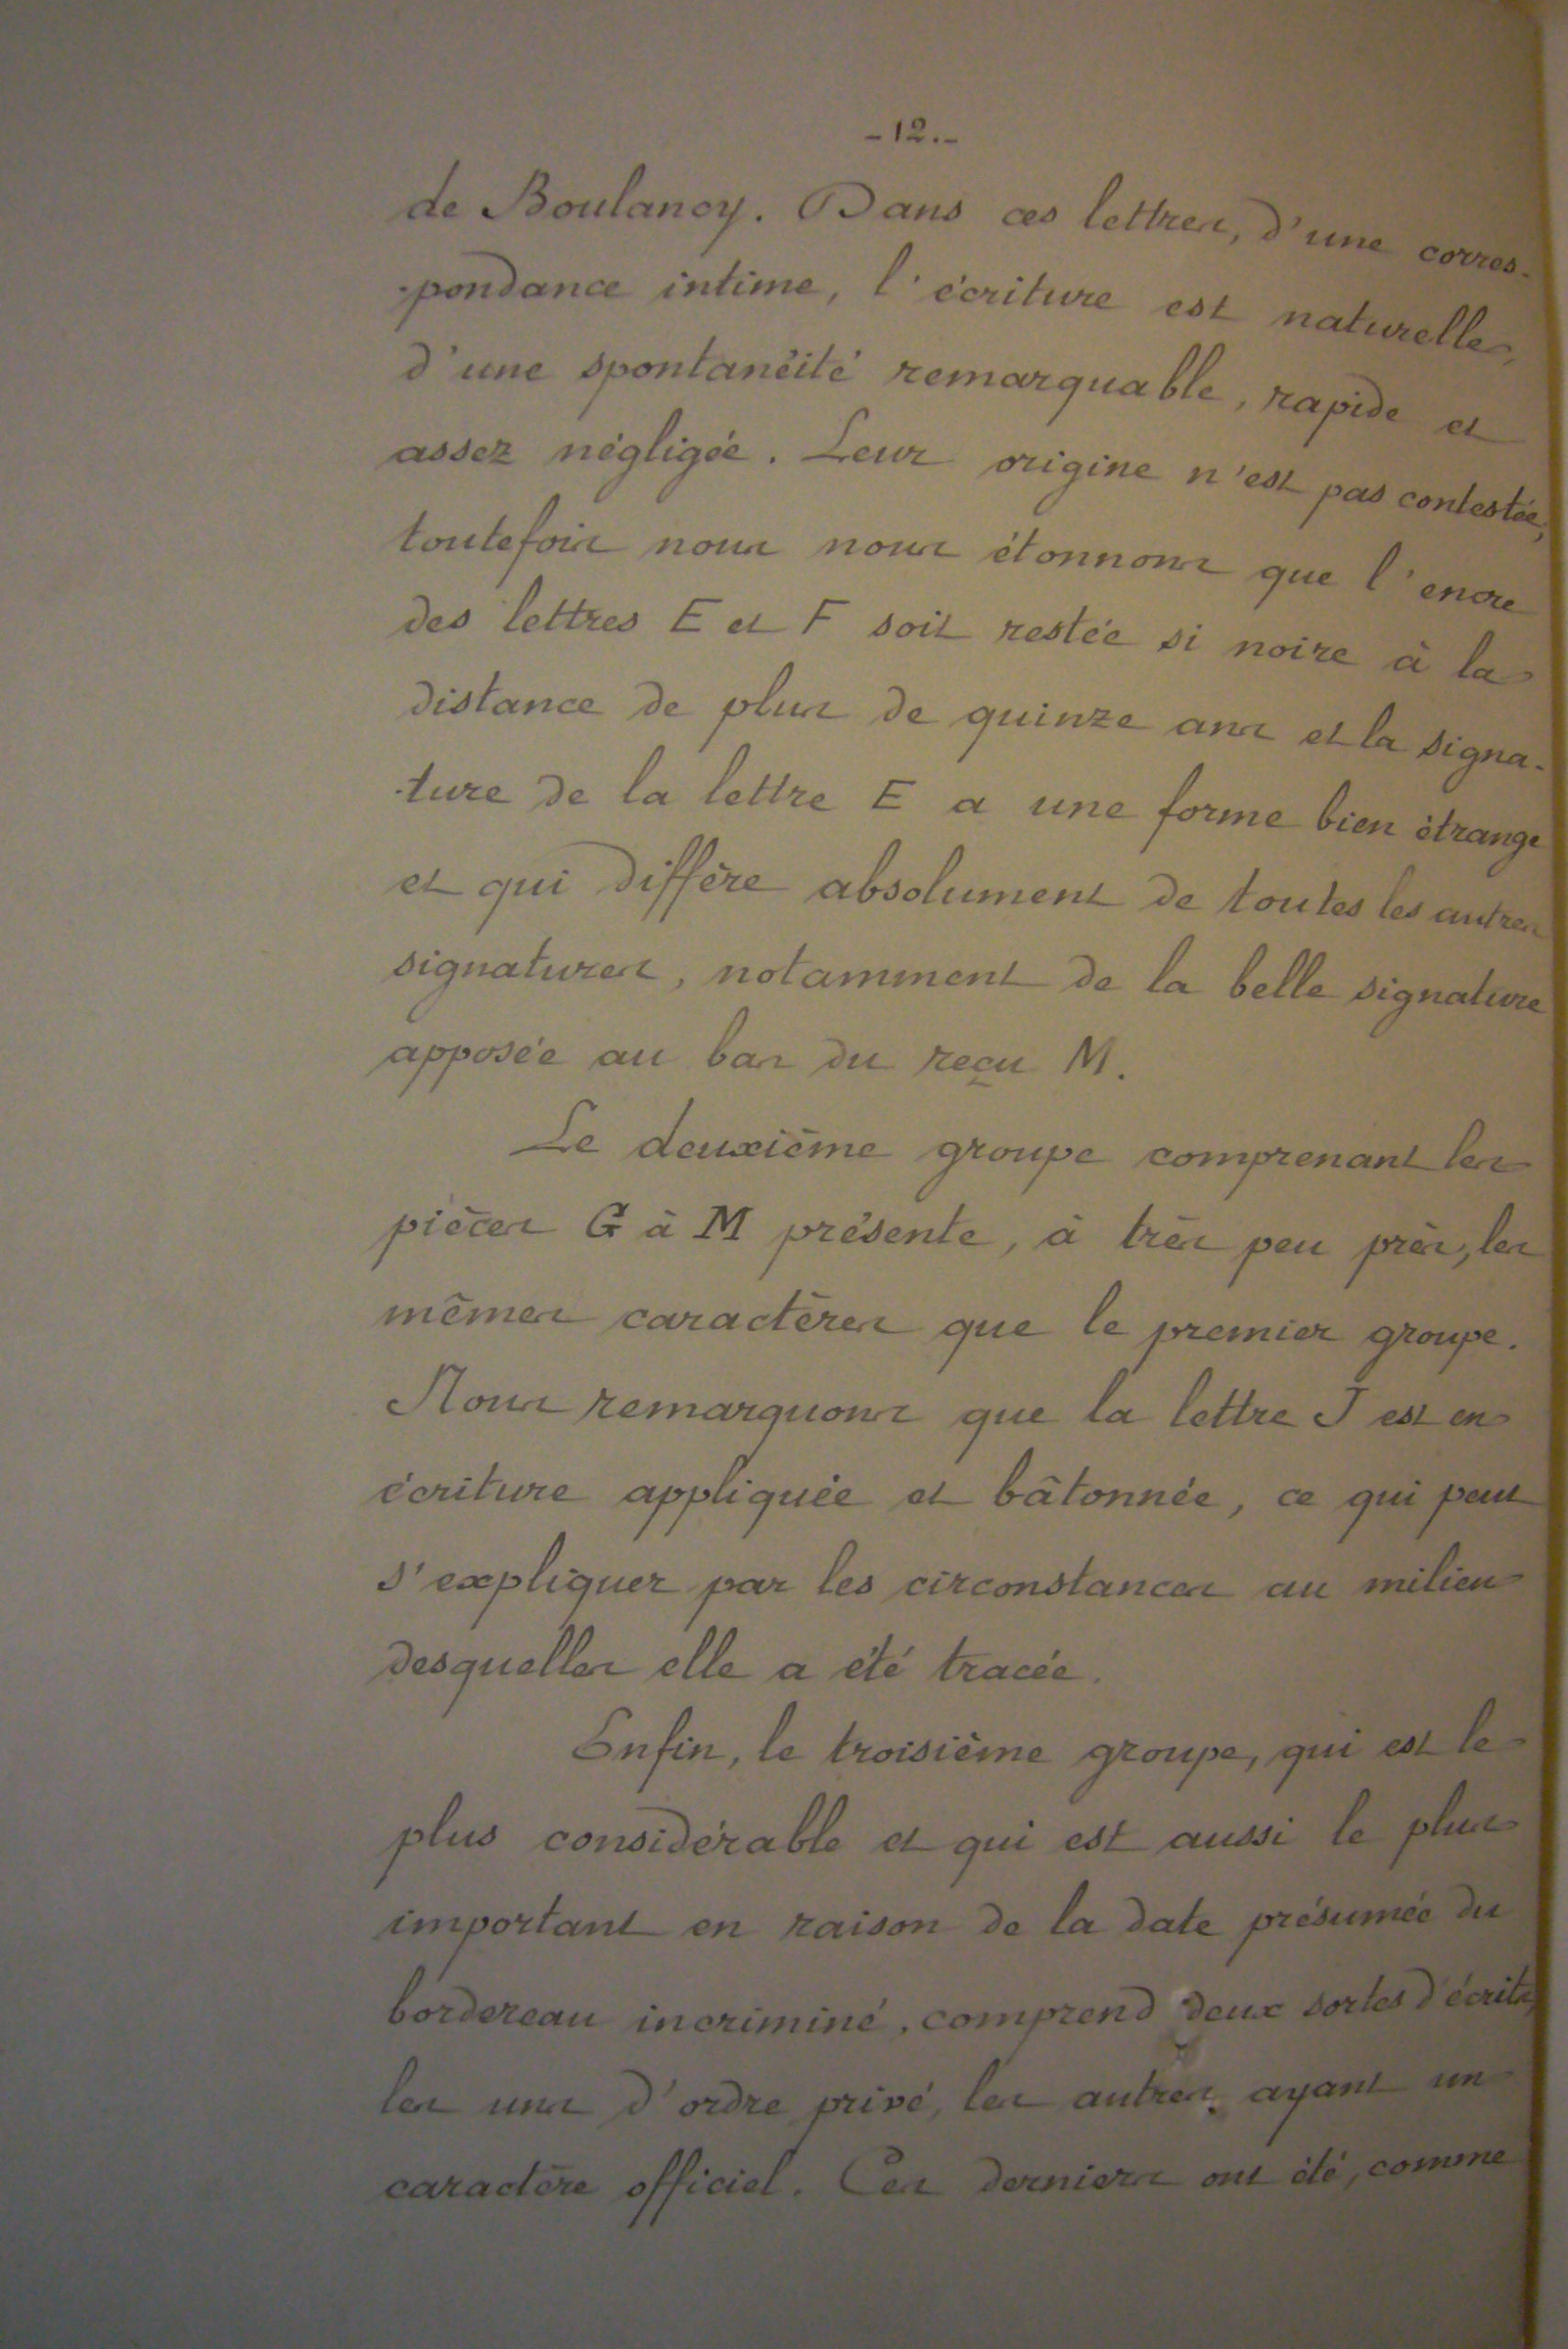 -12.-
de Boulancy. Dans ces lettres, d'une corres-
-pondance intime, l'écriture est naturelle,
d'une spontanéité remarquable, rapide et
assez négligée. Leur origine n'est pas contestée;
toutefois nous nous étonnons que l'encre
des lettres E et F soit restée si noire à la
distance de plus de quinze ans et la signa-
-ture de la lettre E a une forme bien étrange
et qui diffère absolument de toutes les autres
signatures, notamment de la belle signature
apposée au bas du reçu M.
Le deuxième groupe comprenant les
pièces G à M présente, à très peu près, les
mêmes caractères que le premier groupe.
Nous remarquons que la lettre J est en
écriture appliquée et bâtonnée, ce qui peut
s'expliquer par les circonstances au milieu
desquelles elle a été tracée.
Enfin, le troisième groupe, qui est le
plus considérable et qui est aussi le plus
important en raison de la date présumée du
bordereau incriminé, comprend deux sortes d'écrits,
les uns d'ordre privé, les autres ayant un
caractère officiel. Ces derniers ont été, comme